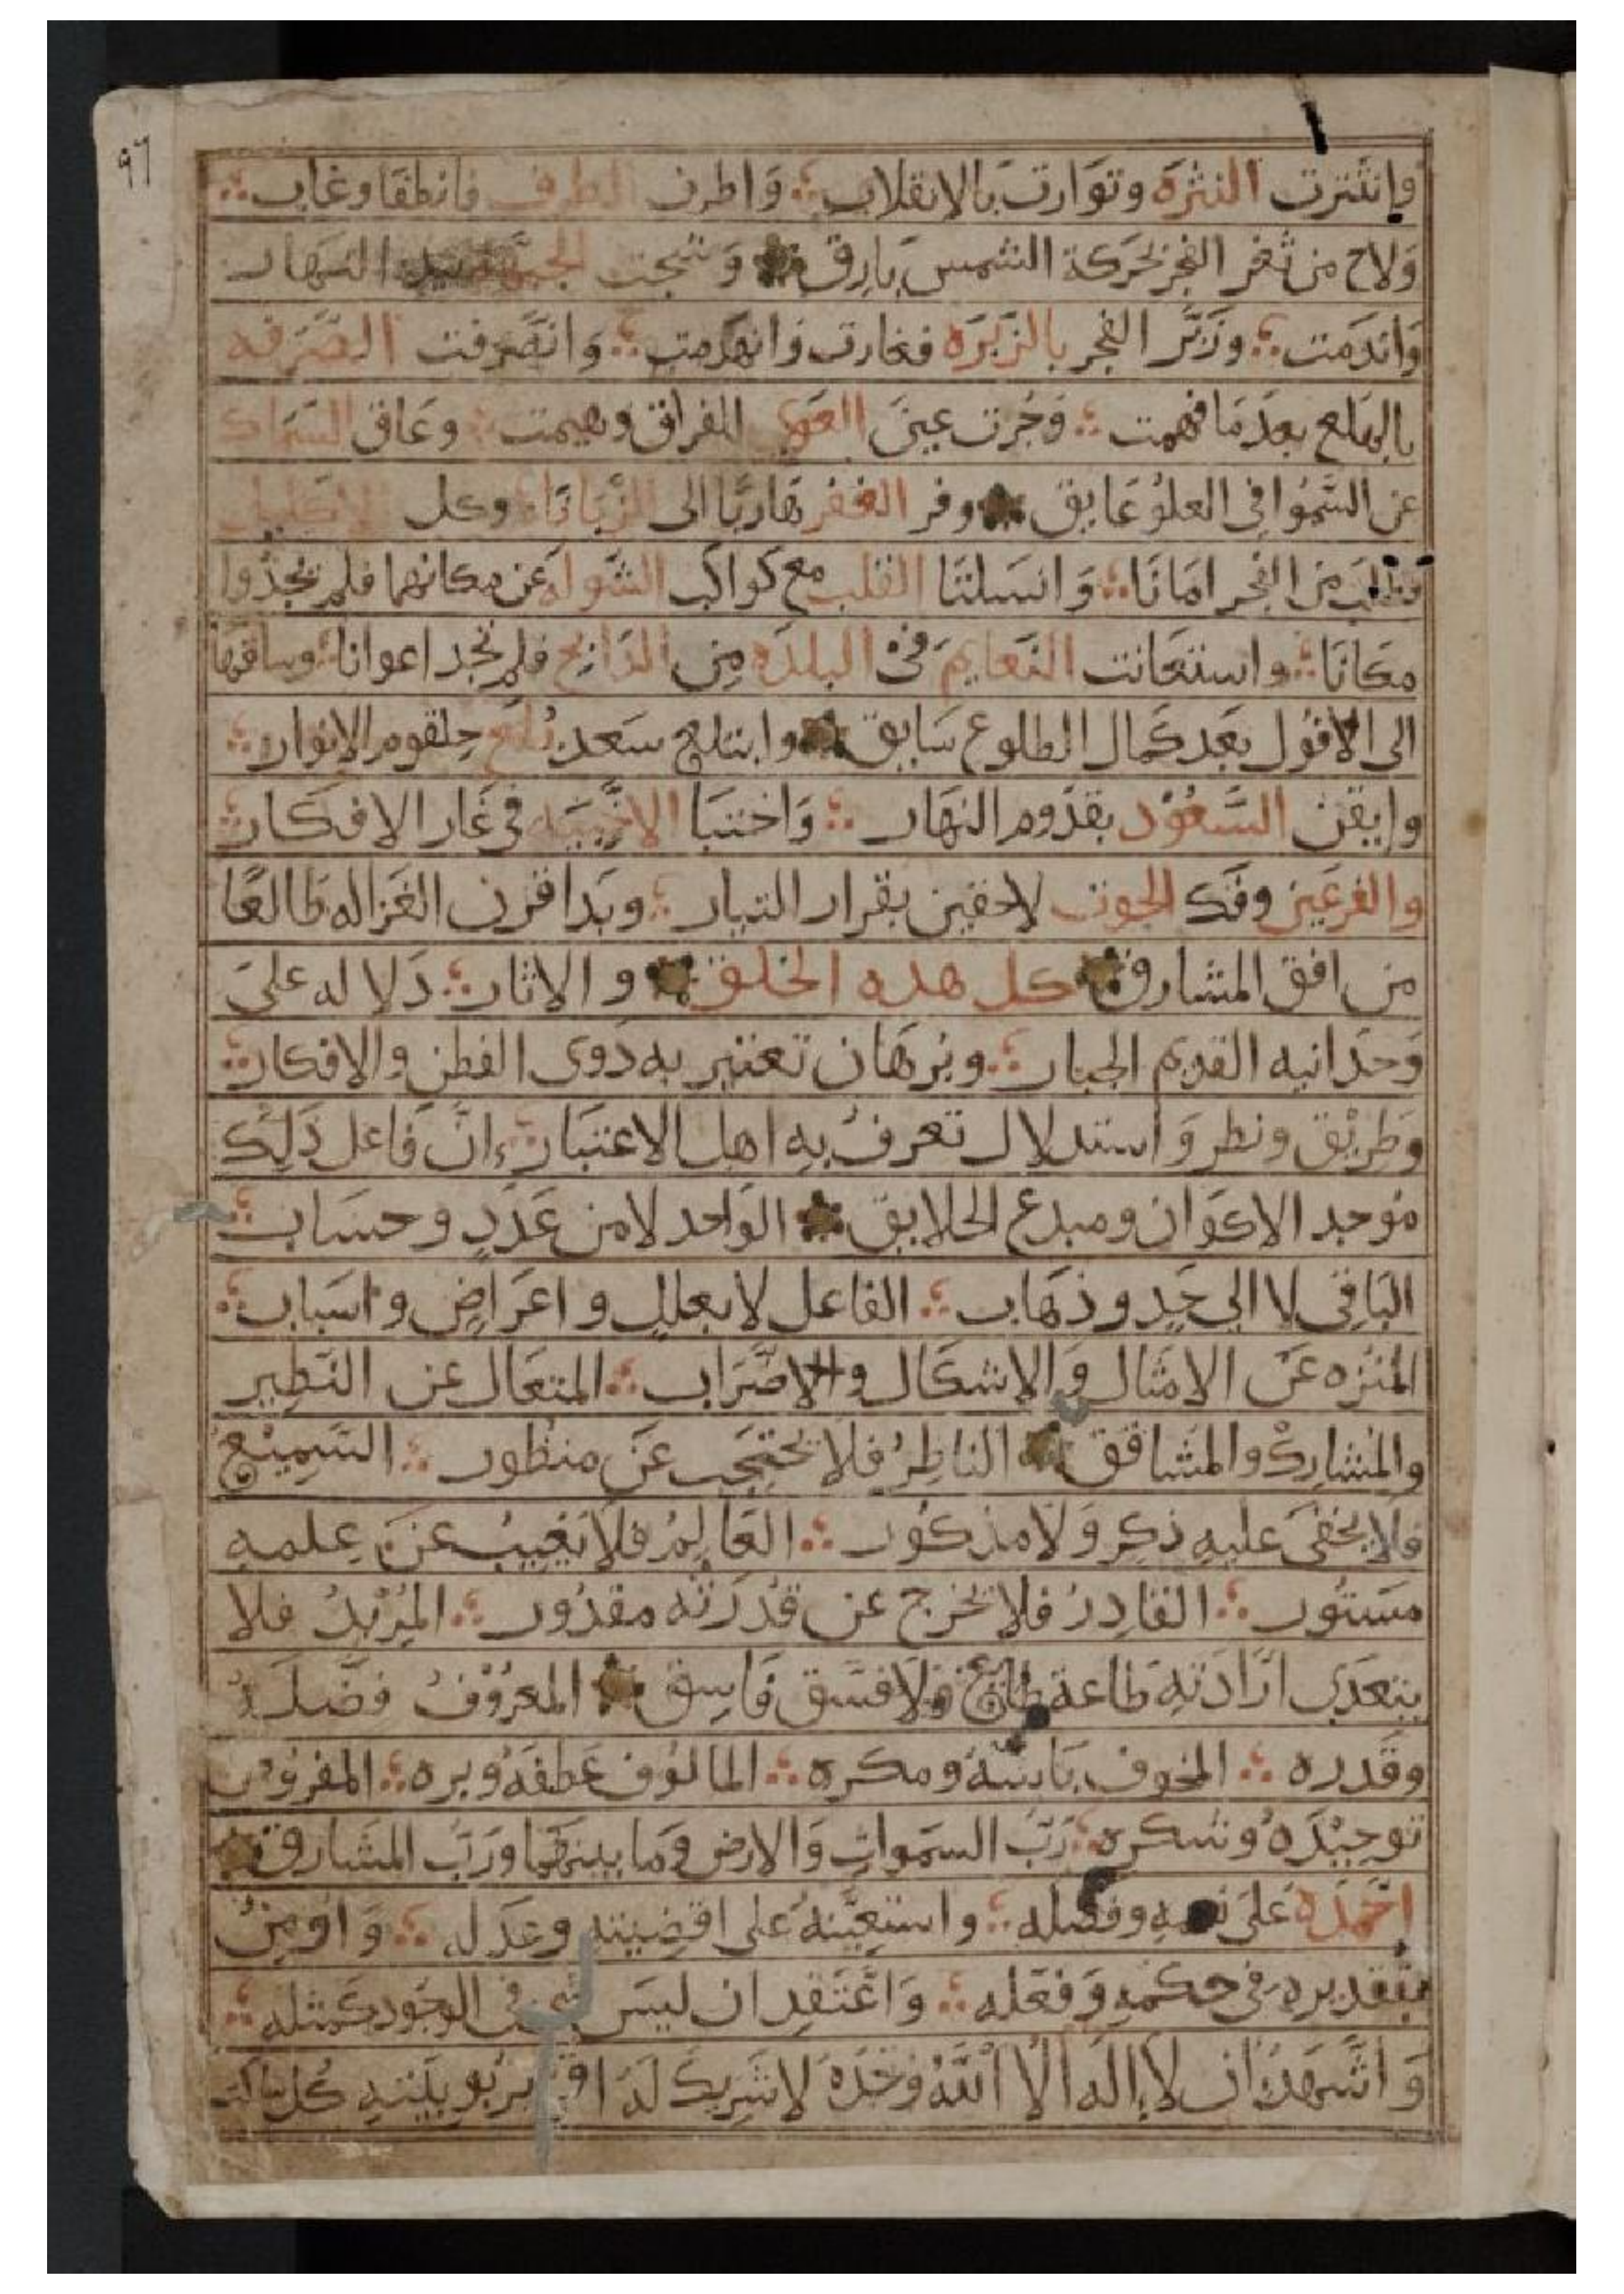 ٩٦
وانتثرت النثرة وتوارت بالانقلاب ؞ وَاطرف الطرف فانطفا وغاب ؞
وَلاح من ثغر الفجر بحَركة الشمس بَارق وَشجت الجبهة النهار
وَاندَمت ؞ وزَبَّر الفجر بالزبَرَه فغارت وَانهدَمت ؞ وَانصَرفت الصَّرفه
بالهلع بعدَمَا فهمت ؞ وَجُرت عينَ العوى المفراق وهيمت ؞ وعَاق السّمَاك
عن السُّمُوا في العلوُ عَايق وفر الغفر هَاربًا الى الزُّبَانَا ؞ وكل الاكليل
وطلب من الفجر امَانَا ؞ وَانسَلتَا القلب مع كواكب الشواله عن مكانهما فلم يجدُوا
مكانَا ؞ واستعَانت النّعَايمَ فى البلدَه مِن الذَابح فلم تجد اعوانا ؞ وساقهَا
الى الافُول بَعد كمال الطلوع سَايق وابتلع سَعد بُلع حلقوم الانوار ؞
وايقن السَّعُوْد بقدُوم النهَار ؞ وَاختبَا الاخْبيَه في غَار الافكار ؞
والفرعَين وفَك الحوت لاحقين بقرار التيار ؞ وبَدا قرن الغَزاله طَالعًا
من افق المشارق كل هذه الخلق والاثار ؞ دَلاله علىَ
وَحدَانيه القديم الجبار ؞ وبُرهَان تعتبر به ذَوى الفطن والافكار ؞
وَطرِيْق ونظر وَاستدلال تعرفُ بهِ اهل الاعتبَار ؞ انَّ فَاعل ذَلِكَ
مُوجد الاكوَان ومبدع الخلايق الوَاحد لامن عَدَدٍ وحسَاب ؞
البَاقى لا الى حَدٍ وذهَاب ؞ الفاعل لا بعللٍ واعرَاضٍ واسبَاب ؞
المنَزه عَن الامثال وَالاشكال والاضرَاب ؞ المتعَال عن النّظِير
والمُشارِك والمشَاقق الناظِرُ فلا يحتجَب عَن منظور ؞ السّمِيْع
فلا يخفىَ عليهِ ذكر وَلا مذكُور ؞ العَالِمُ فلا يَغِيبُ عَن عِلمهِ
مسَتُور ؞ القادِرُ فلا يخرج عن قُدرَته مقدُور ؞ المُرِيْدُ فلا
يتعدَى ارَادَتهِ طاعَة طائع وَلا فسَق فَاسِق المعرُوْفُ فضَلَهُ
وقَدره ؞ المخوف بَاسُهُ ومكره ؞ المالُوْف عَطفهُ وبره ؞ المفروْض
توحِيْدَهُ وشكره ؞ رَبَّ السَموَاتِ وَالارض وَمَا بينهَمَا ورَبَّ المشَارق
احمَدَهُ عَلىَ نعمهِ وفضله ؞ واستعِيْنهُ على اقضِيتهِ وعَدله ؞ وَاومِنُ
بتقديره فى حكمهِ وَفعَله ؞ وَاعْتَقِد ان ليسَ فى الوجُود كمثله ؞
وَاشْهَدُ ان لا اله الا اللهُ وَحْدَهُ لا شَرِيكَ لَهُ اقر بربوبيَتهِ كل